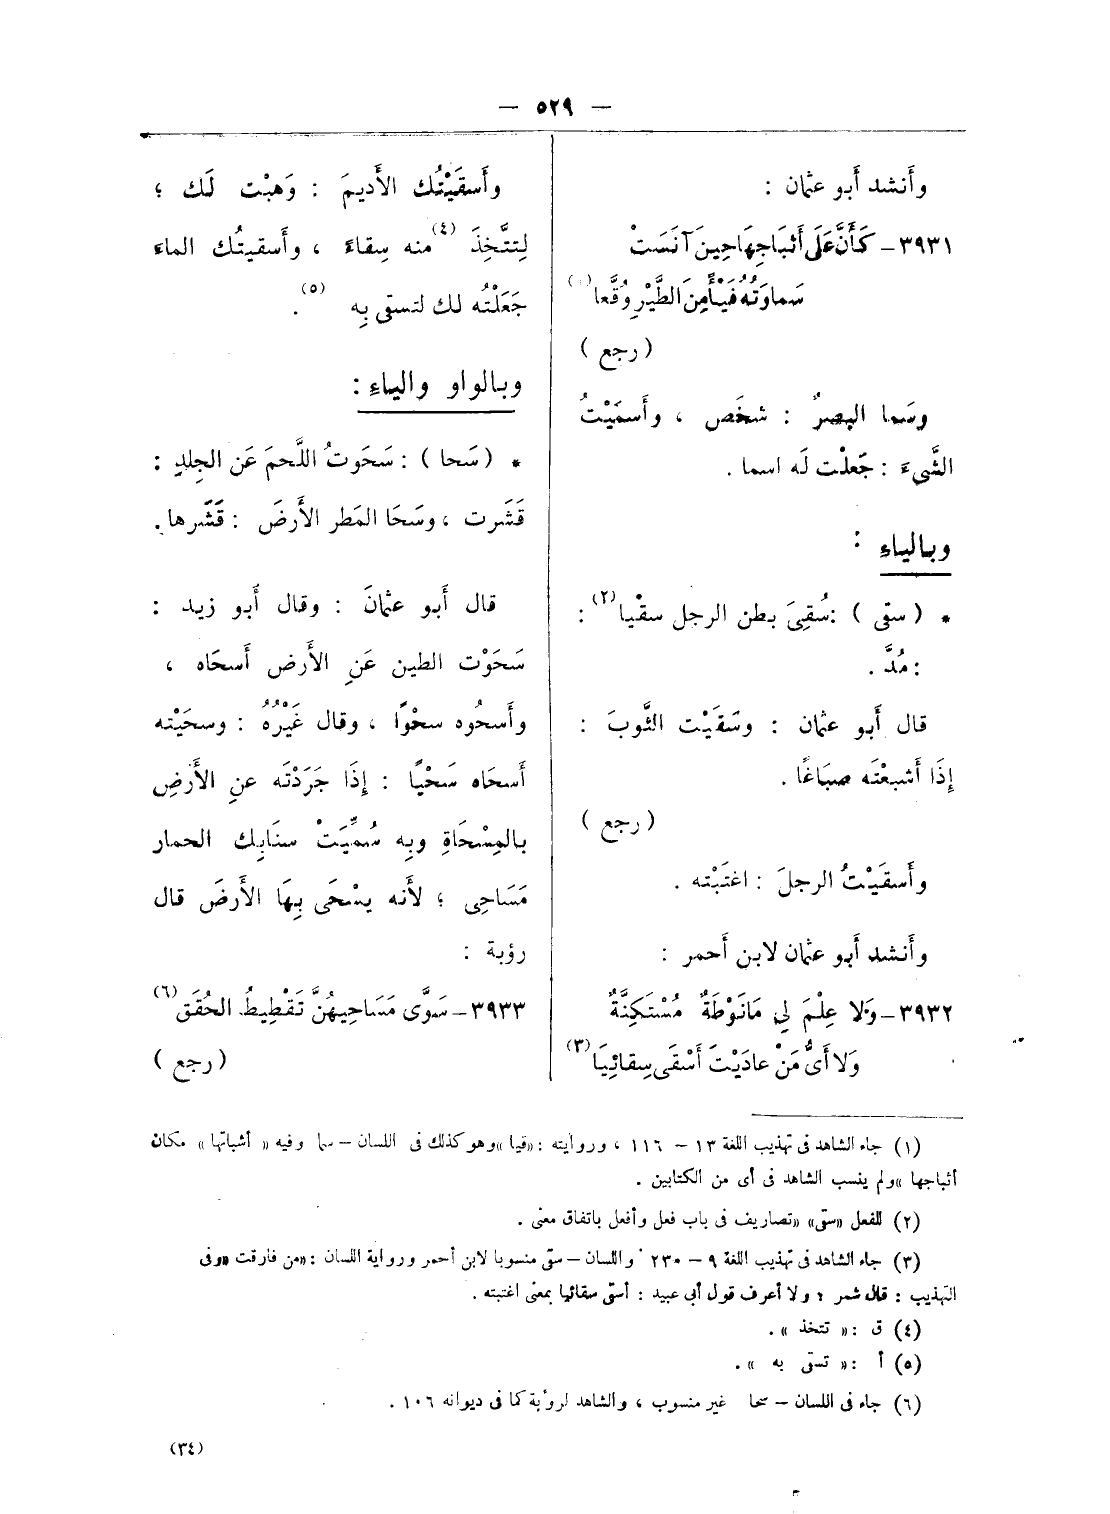 — ٥٢٩ —
وأَنشد أَبو عثمان :
٣٩٣١ – كَأَنَّ عَلَى أَثبَاجِهَا حِينَ آنَسَتْ
سَماوَتُهُ فَيْأً مِنَ الطَّيْرِ وُقَّعا (١)
( رجع )
وسَما البصرُ : شخَص ، وأَسمَيْتُ
الشَّىءَ : جَعلْت لَه اسما .
وبالياء :
* ( سقى ) : سُقِىَ بطن الرجل سقْيا (٢) :
: مُدَّ .
قال أَبو عثمان : وسَقَيْت الثَّوبَ :
إِذَا أَشبعْتَه صبَاغًا .
( رجع )
وأَسقَيْتُ الرجلَ : اغتَبْته .
وأَنشد أَبو عثمان لابن أَحمر :
٣٩٣٢ – وَلا عِلْمَ لِي مَانَوْطَةٌ مُسْتَكِنَّةٌ
وَلا أَىُّ مَنْ عادَيْتَ أَسْقَى سِقائِيَا (٣)
وأَسقَيْتُك الأَديمَ : وَهبْت لَك ؛
لِتتَّخِذَ (٤) منه سِقاءً ، وأَسقيتُك الماءَ
جَعَلْتُه لك لتسقى بِه (٥) .
وبالواو والياء :
* ( سَحا ) : سَحَوتُ اللَّحمَ عَن الجِلدِ :
قَشَرت ، وسَحَا المَطر الأَرضَ : قَشَرها .
قال أَبو عثمانَ : وقال أَبو زيد :
سَحَوْت الطين عَنِ الأَرض أَسحَاه ،
وأَسحُوه سحْوًا ، وقال غَيْرُهُ : وسحَيْته
أَسحَاه سَحْيًا : إِذَا جَرَدْتَه عنِ الأَرضِ
بالمِسْحَاةِ وبِه سُمِّيَتْ سنَابِك الحمار
مَسَاحِى ؛ لأَنه يسْحَى بِهَا الأَرضَ قال
رؤبة :
٣٩٣٣ – سَوَّى مَسَاحِيهُنَّ تَقْطِيطُ الحُقَق (٦)
( رجع )
(١) جاء الشاهد فى تهذيب اللغة ١٣ – ١١٦ ، وروايته : «قيا» وهو كذلك فى اللسان – سما وفيه « أشباتها » مكان
أثباجها » ولم ينسب الشاهد فى أى من الكتابين .
(٢) للفعل «سقى» «تصاريف فى باب فعل وأفعل باتفاق معنى .
(٣) جاء الشاهد فى تهذيب اللغة ٩ – ٢٣٠ واللسان – سقى منسوبا لابن أحمر ورواية اللسان : «من فارقت «وفى
التهذيب : قال شمر ؛ ولا أعرف قول أبى عبيد : أسقى سقائيا بمعنى اغتبته .
(٤) ق : « تتخذ » .
(٥) أ : « تسقى به » .
(٦) جاء فى اللسان – سحا غير منسوب ، والشاهد لرؤبة كما فى ديوانه ١٠٦ .
(٣٤)